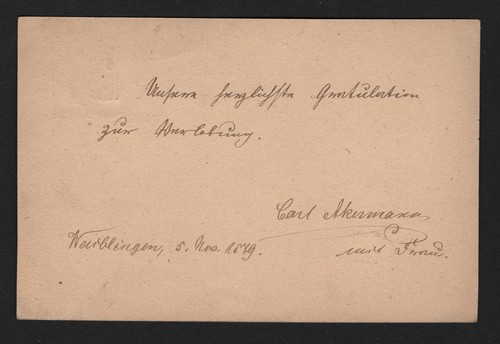 Unsere herzlichste Gratulation
zur Verlobung.
Carl Akermann
Waiblingen, 5. Nov. 1879.
mit Frau.